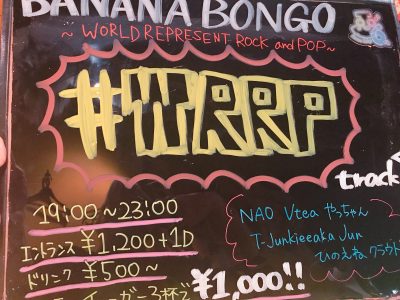 BANANA BONGO
~ WORLD REPRESENT ROCK and POP ~
#WRRP
track
19:00~23:00
エントランス ¥1,200+1D
ドリンク ¥500~
¥1,000!!
NAO Vtea やっちゃん
T-Junkieeaka Jun
ひのえね クラウド